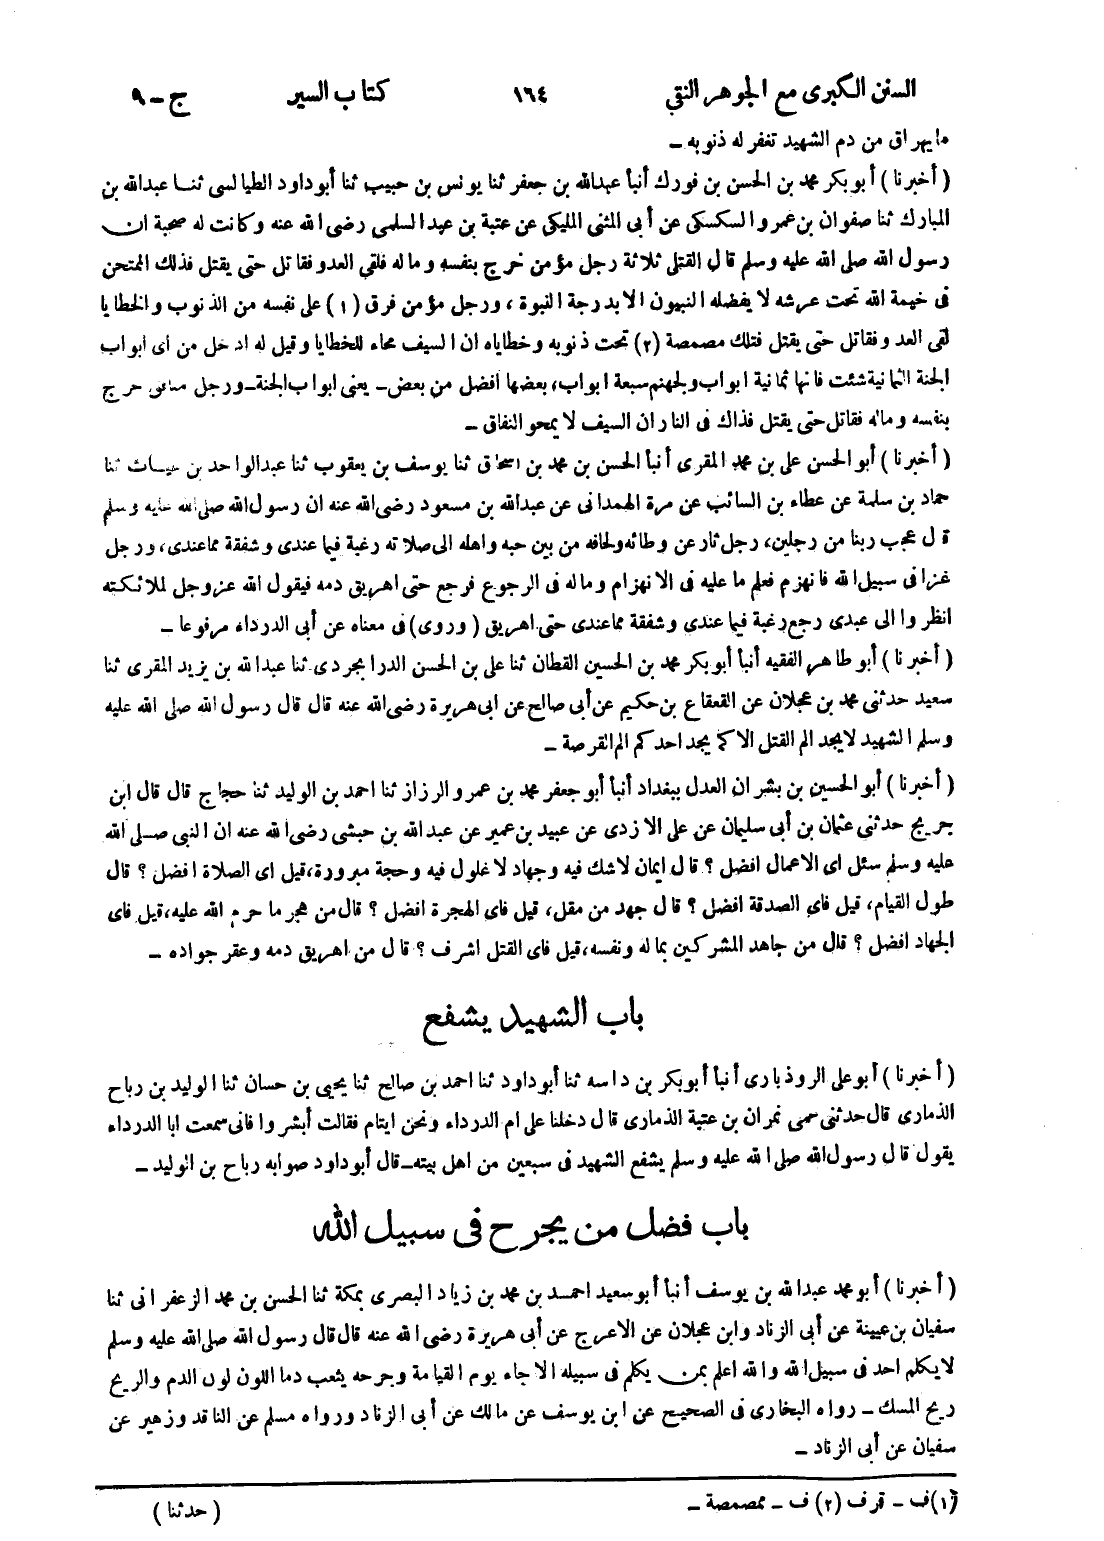 السنن الكبرى مع الجوهر النقي ١٦٤ كتاب السير ج - ٩
ما يهراق من دم الشهيد تغفر له ذنوبه -
( أخبرنا ) أبو بكر محمد بن الحسن بن فورك أنبأ عبدالله بن جعفر ثنا يونس بن حبيب ثنا أبو داود الطيالسى ثنا عبدالله بن
المبارك ثنا صفوان بن عمرو السكسكى عن أبى المثنى المليكى عن عتبة بن عبد السلمى رضى الله عنه وكانت له صحبة ان
رسول الله صلى الله عليه وسلم قال القتلى ثلاثة رجل مؤمن خرج بنفسه وماله فلقى العدو فقاتل حتى يقتل فذلك الممتحن
فى خيمة الله تحت عرشه لا يفضله النبيون الا بدرجة النبوة ، ورجل مؤمن فرق (١) على نفسه من الذنوب والخطايا
لقى العدو فقاتل حتى يقتل فتلك مصمصة (٢) تحت ذنوبه وخطاياه ان السيف محاء للخطايا وقيل له ادخل من اى ابواب
الجنة الثمانية شئت فانها ثمانية ابواب ولجهنم سبعة ابواب، بعضها افضل من بعض - يعنى ابواب الجنة - ورجل منافق خرج
بنفسه وماله فقاتل حتى يقتل فذاك فى النار ان السيف لا يمحو النفاق -
( أخبرنا ) أبو الحسن على بن محمد المقرى أنبأ الحسن بن محمد بن اسحاق ثنا يوسف بن يعقوب ثنا عبدالواحد بن غياث ثنا
حماد بن سلمة عن عطاء بن السائب عن مرة الهمدانى عن عبدالله بن مسعود رضى الله عنه ان رسول الله صلى الله عليه وسلم
قال عجب ربنا من رجلين، رجل ثار عن وطائه ولحافه من بين حبه واهله الى صلاته رغبة فيما عندى وشفقة مما عندى، ورجل
غزا فى سبيل الله فانهزم فعلم ما عليه فى الانهزام وماله فى الرجوع فرجع حتى اهريق دمه فيقول الله عزوجل لملائكته
انظروا الى عبدى رجع رغبة فيما عندى وشفقة مما عندى حتى اهريق ( وروى ) فى معناه عن أبى الدرداء مرفوعا -
( أخبرنا ) أبو طاهر الفقيه أنبأ أبو بكر محمد بن الحسين القطان ثنا على بن الحسن الدرابجردى ثنا عبدالله بن يزيد المقرى ثنا
سعيد حدثنى محمد بن عجلان عن القعقاع بن حكيم عن أبى صالح عن ابى هريرة رضى الله عنه قال قال رسول الله صلى الله عليه
وسلم الشهيد لا يجد الم القتل الا كما يجد احدكم الم القرصة -
( أخبرنا ) أبو الحسين بن بشران العدل ببغداد أنبأ أبو جعفر محمد بن عمرو الرزاز ثنا احمد بن الوليد ثنا حجاج قال قال ابن
جريج حدثنى عثمان بن أبى سليمان عن على الازدى عن عبيد بن عمير عن عبد الله بن حبشى رضى الله عنه ان النبى صلى الله
عليه وسلم سئل اى الاعمال افضل ؟ قال ايمان لاشك فيه وجهاد لا غلول فيه وحجة مبرورة، قيل اى الصلاة افضل ؟ قال
طول القيام، قيل فاى الصدقة افضل ؟ قال جهد من مقل، قيل فاى الهجرة افضل ؟ قال من هجر ما حرم الله عليه، قيل فاى
الجهاد افضل ؟ قال من جاهد المشركين بماله ونفسه، قيل فاى القتل اشرف ؟ قال من اهريق دمه وعقر جواده -
باب الشهيد يشفع
( أخبرنا ) أبو على الروذبارى أنبأ أبو بكر بن داسه ثنا أبو داود ثنا احمد بن صالح ثنا يحيى بن حسان ثنا الوليد بن رباح
الذمارى قال حدثنى عمى نمران بن عتبة الذمارى قال دخلنا على ام الدرداء ونحن ايتام فقالت أبشروا فانى سمعت ابا الدرداء
يقول قال رسول الله صلى الله عليه وسلم يشفع الشهيد فى سبعين من اهل بيته - قال أبو داود صوابه رباح بن الوليد -
باب فضل من يجرح فى سبيل الله
( أخبرنا ) أبو محمد عبدالله بن يوسف أنبأ أبو سعيد احمد بن محمد بن زياد البصرى بمكة ثنا الحسن بن محمد الزعفرانى ثنا
سفيان بن عيينة عن أبى الزناد وابن عجلان عن الاعرج عن أبى هريرة رضى الله عنه قال قال رسول الله صلى الله عليه وسلم
لا يكلم احد فى سبيل الله والله اعلم بمن يكلم فى سبيله الا جاء يوم القيامة وجرحه يثعب دما اللون لون الدم والريح
ريح المسك - رواه البخارى فى الصحيح عن ابن يوسف عن مالك عن أبى الزناد ورواه مسلم عن الناقد وزهير عن
سفيان عن أبى الزناد -
(١) ف - قرف (٢) ف - ممصمصة - ( حدثنا )